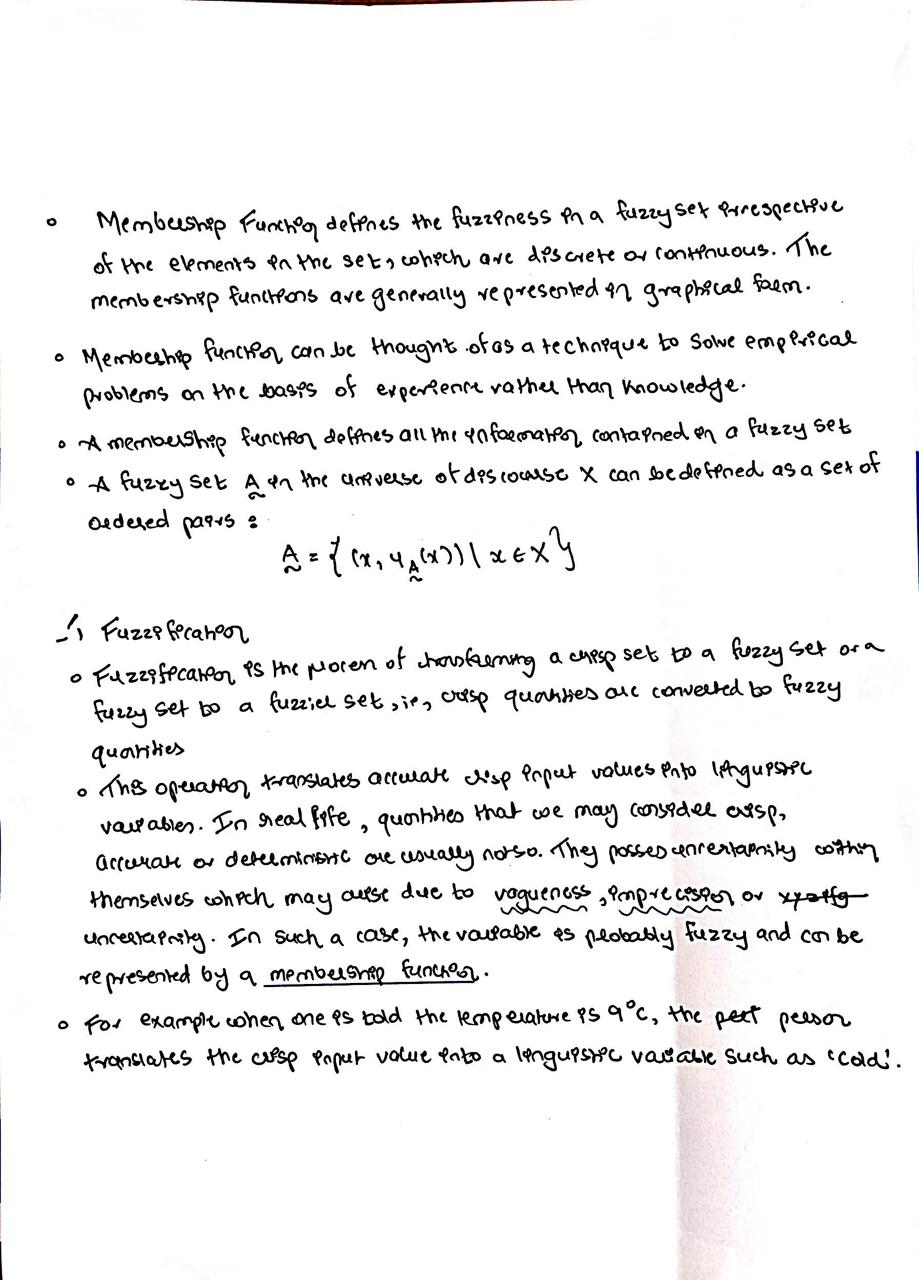 ∘ Membership Function defines the fuzziness in a fuzzy set irrespective
of the elements in the set, which are discrete or continuous. The
membership functions are generally represented in graphical form.
∘ Membeship function can be thought of as a technique to solve empirical
problems on the basis of experience rather than knowledge.
∘ A membership function defines all the information contained in a fuzzy set
∘ A fuzzy set A̰ in the universe of discourse X can be defined as a set of
ordered pairs :
A̰ = { (x, μA̰(x)) | x ∈ X }
Fuzzification
∘ Fuzzification is the process of transforming a crisp set to a fuzzy set or a
fuzzy set to a fuzzier set, ie, crisp quantities are converted to fuzzy
quantities
∘ This operation translates accurate crisp input values into linguistic
variables. In real life, quantities that we may consider crisp,
accurate or deterministic are usually not so. They posses uncertainity within
themselves which may arise due to vagueness, imprecision or
uncertainity. In such a case, the variable is probably fuzzy and can be
represented by a membership function.
∘ For example when one is told the temperature is 9°c, the person
translates the crisp input value into a linguistic variable such as 'cold'.